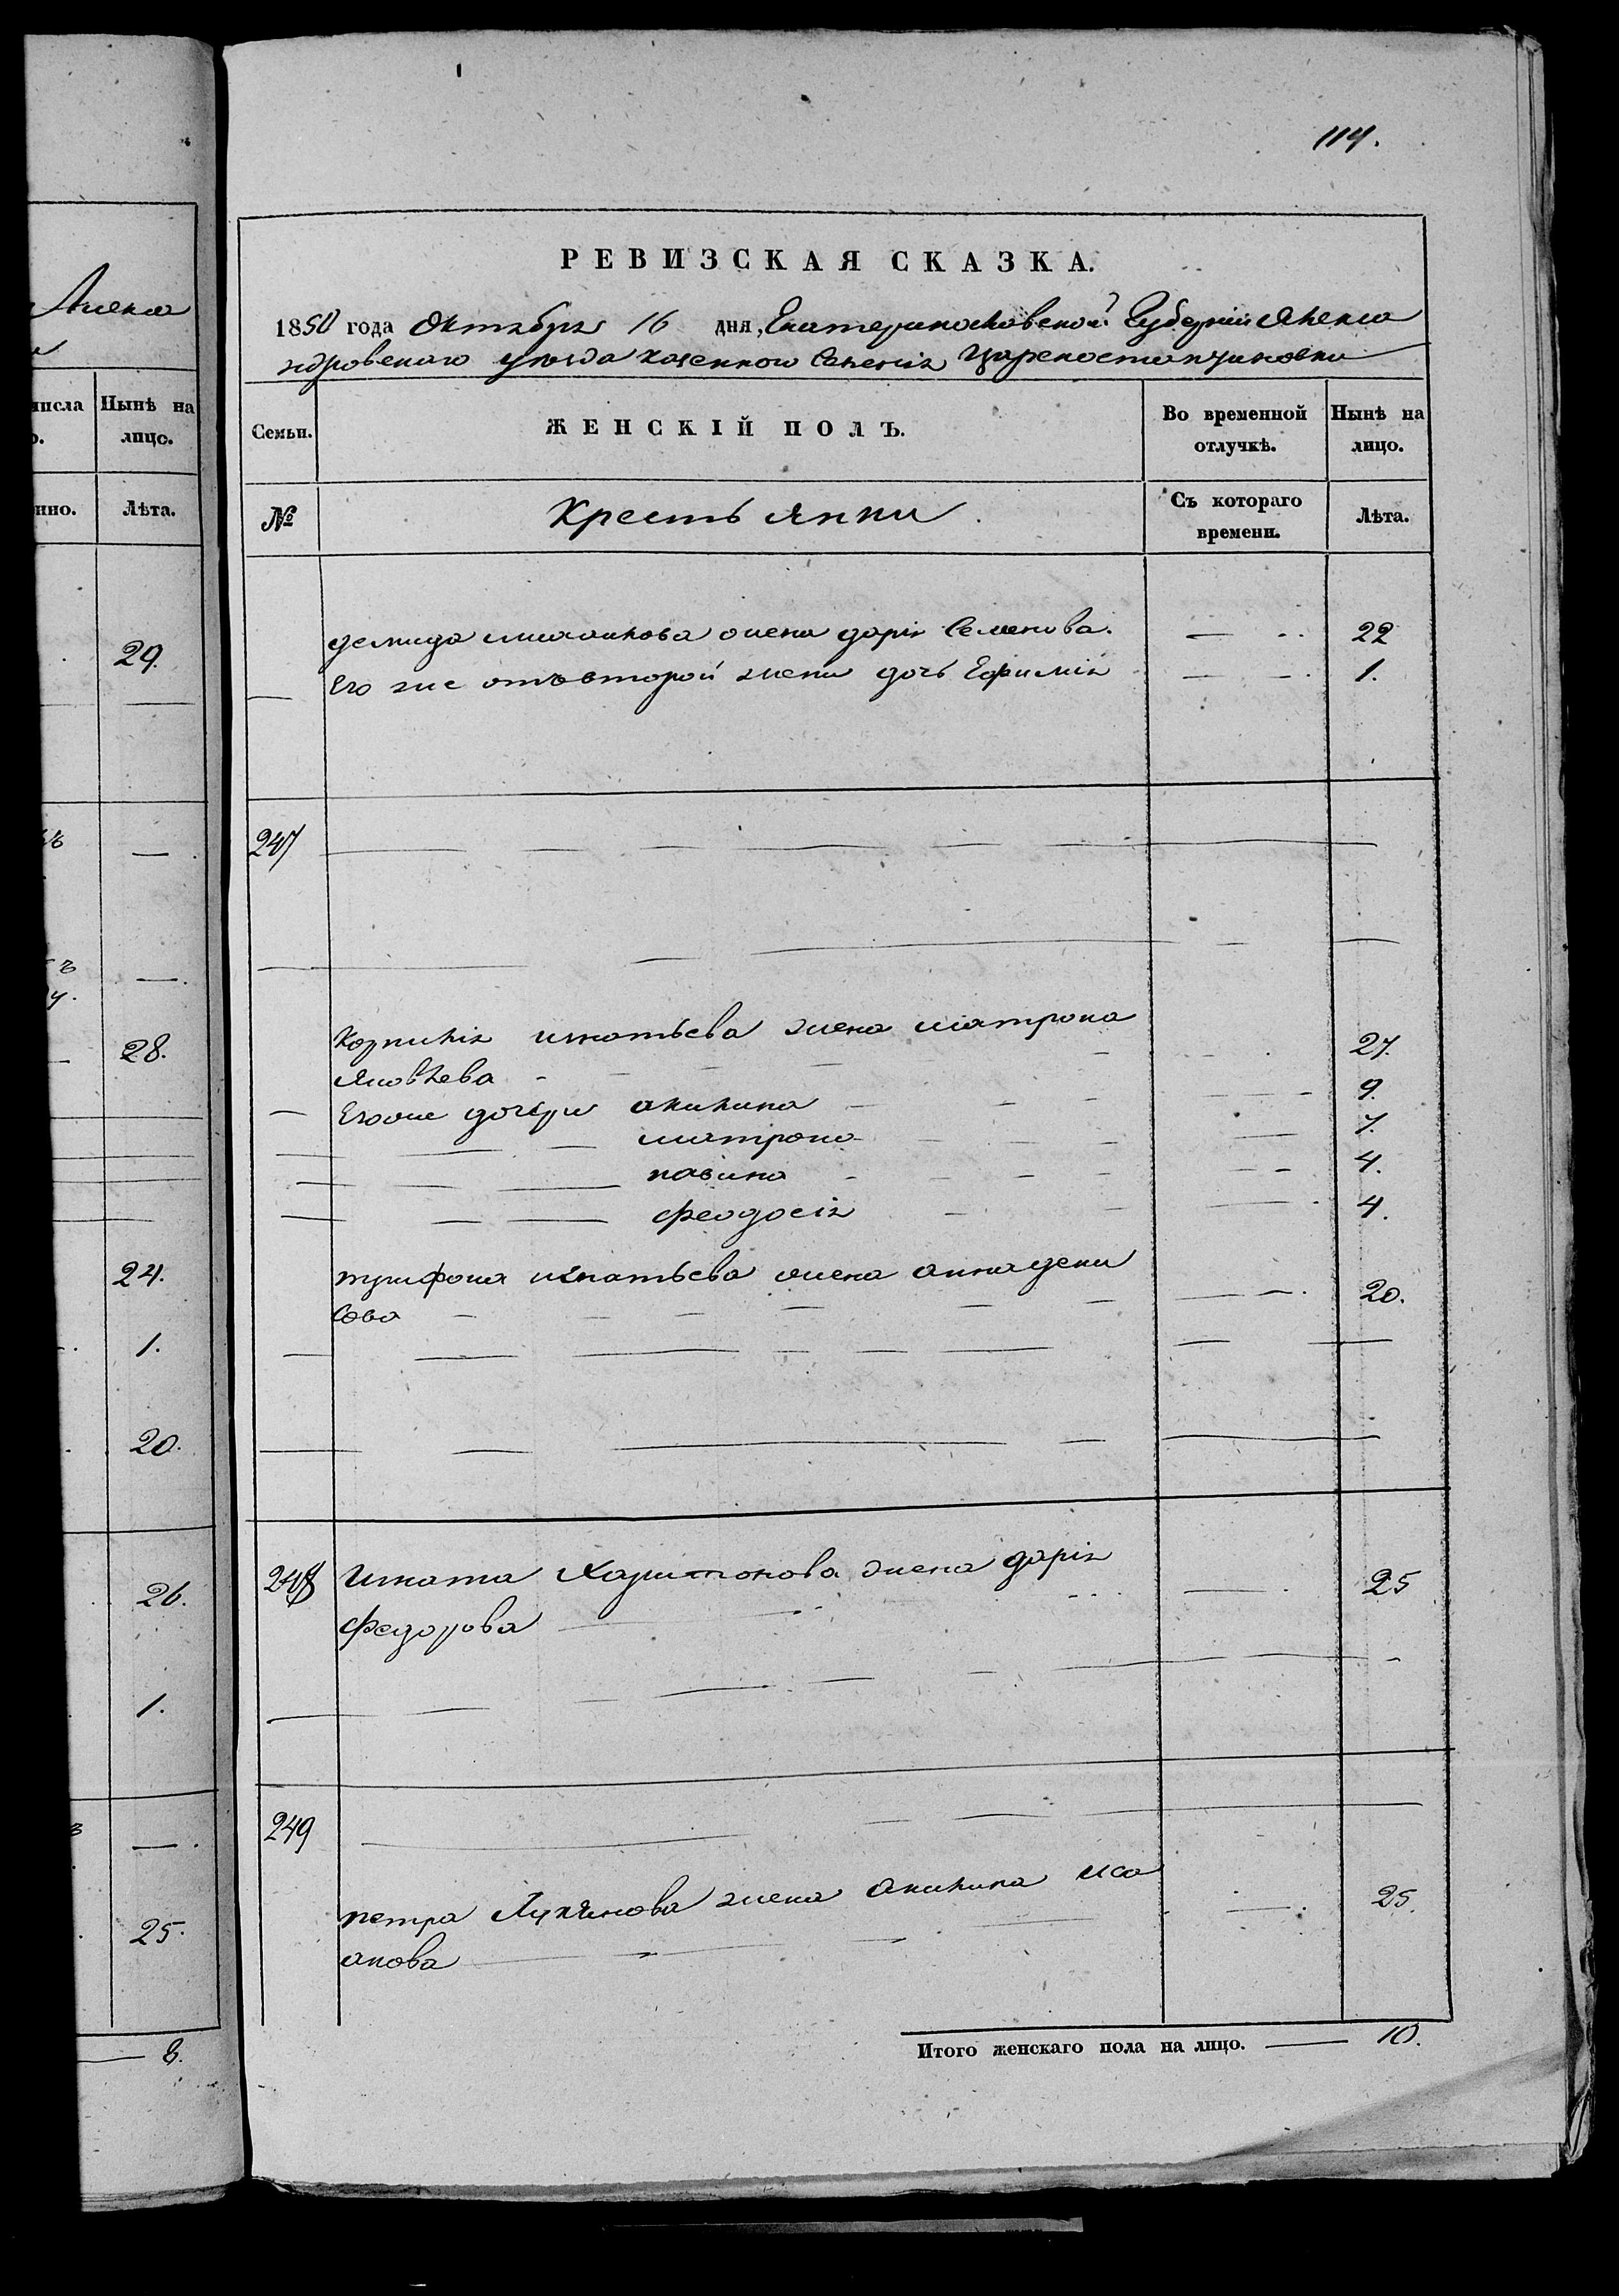 114.
Алекса
числа
Нынѣ на лицо.
нно.
Лѣта.
29.
28.
24.
1.
20.
26.
1.
25.
8.
РЕВИЗСКАЯ СКАЗКА.
1850 года Октября 16 дня, Екатеринославской Губерніи Алекса
ндровскаго уѣзда казенного Селенія Цареконстантиновки
Семьи.
ЖЕНСКІЙ ПОЛЪ.
Во временной отлучкѣ.
Нынѣ на лицо.
№
Крестьянки
Съ котораго времени.
Лѣта.
демида жена дарія Семенова. 22
Его же отъ второй жены дочь Ефимія 1.
247
Корнилія игнатьева жена матрона
Яковлева 27.
Его же дочери акилина 9.
матрона 7.
павина 4.
феодосія 4.
трифона игнатьева жена анна дени
сова 20.
248 Игната Харитонова жена дарія 25
Федорова
249
петра Лукянова жена Акилина Иса 25.
акова
Итого женскаго пола на лицо. 10.